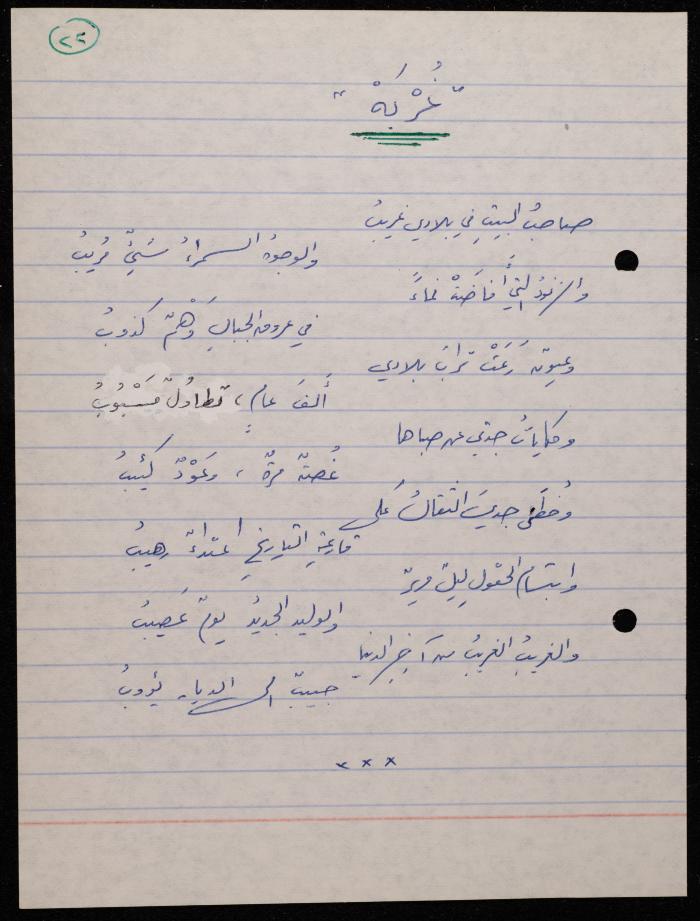 ٢٢
" غُرْبَهْ "
صاحبُ البيتِ فِي بلادي غريبُ
والوجوهُ السمراءُ شَيْءٌ مُريبُ
والزنودُ التي أَفاضَتْ نماءً
في عروقِ الجبالِ وَهْمٌ كذوبُ
وعيونٌ رَعَتْ ترابَ بلادي
أَلفَ عام ، تطاولٌ مَسْبُوبُ
وحكاياتُ جدتي عن صباها
غُصّةٌ مرّةٌ ، وعَوْدٌ كئيبُ
وخُطَى جديَ الثقالُ على
قارعةِ التاريخِ اعتداءٌ رهيبُ
وابتسامُ الحقولِ ليلٌ مريرٌ
والوليد الجديدُ يومٌ عَصِيبُ
والغريبُ الغريبُ من آخِرِ الدنيا
حبيبٌ الى الديار يؤوبُ
× × ×